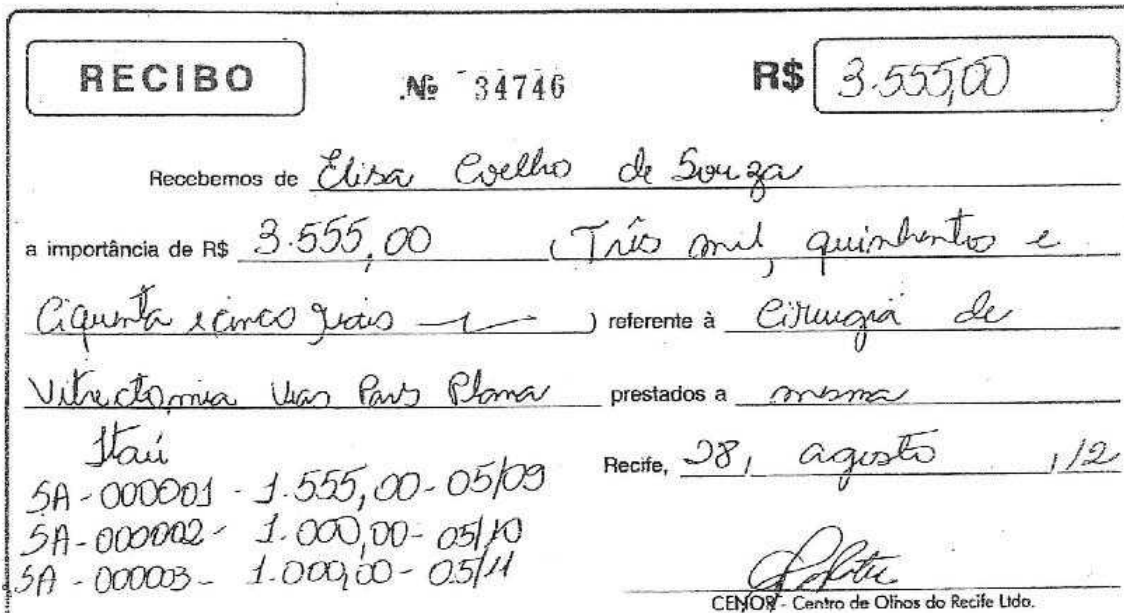 RECIBO Nº 34746 R$ 3.555,00
Recebemos de Elisa Coelho de Souza
a importância de R$ 3.555,00 (Três mil, quinhentos e
Ciquenta e cinco reais ) referente à Cirurgia de
Vitrectomia Vias Pars Plana prestados a mesma
Itaú
Recife, 28, agosto , 12
SA - 000001 - 1.555,00 - 05/09
SA - 000002 - 1.000,00 - 05/10
SA - 000003 - 1.000,00 - 05/11
CENOR - Centro de Olhos do Recife Ltda.